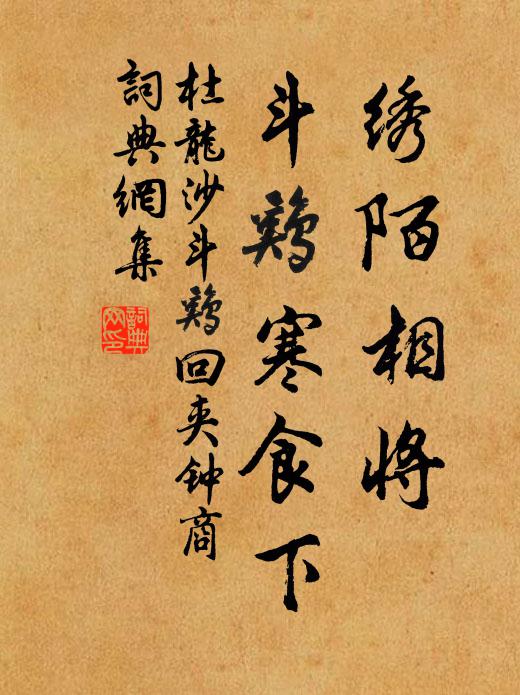 绣陌相将
斗鷄寒食下
杜龍沙斗鷄回夹钟商
詞典網集
詞典网印